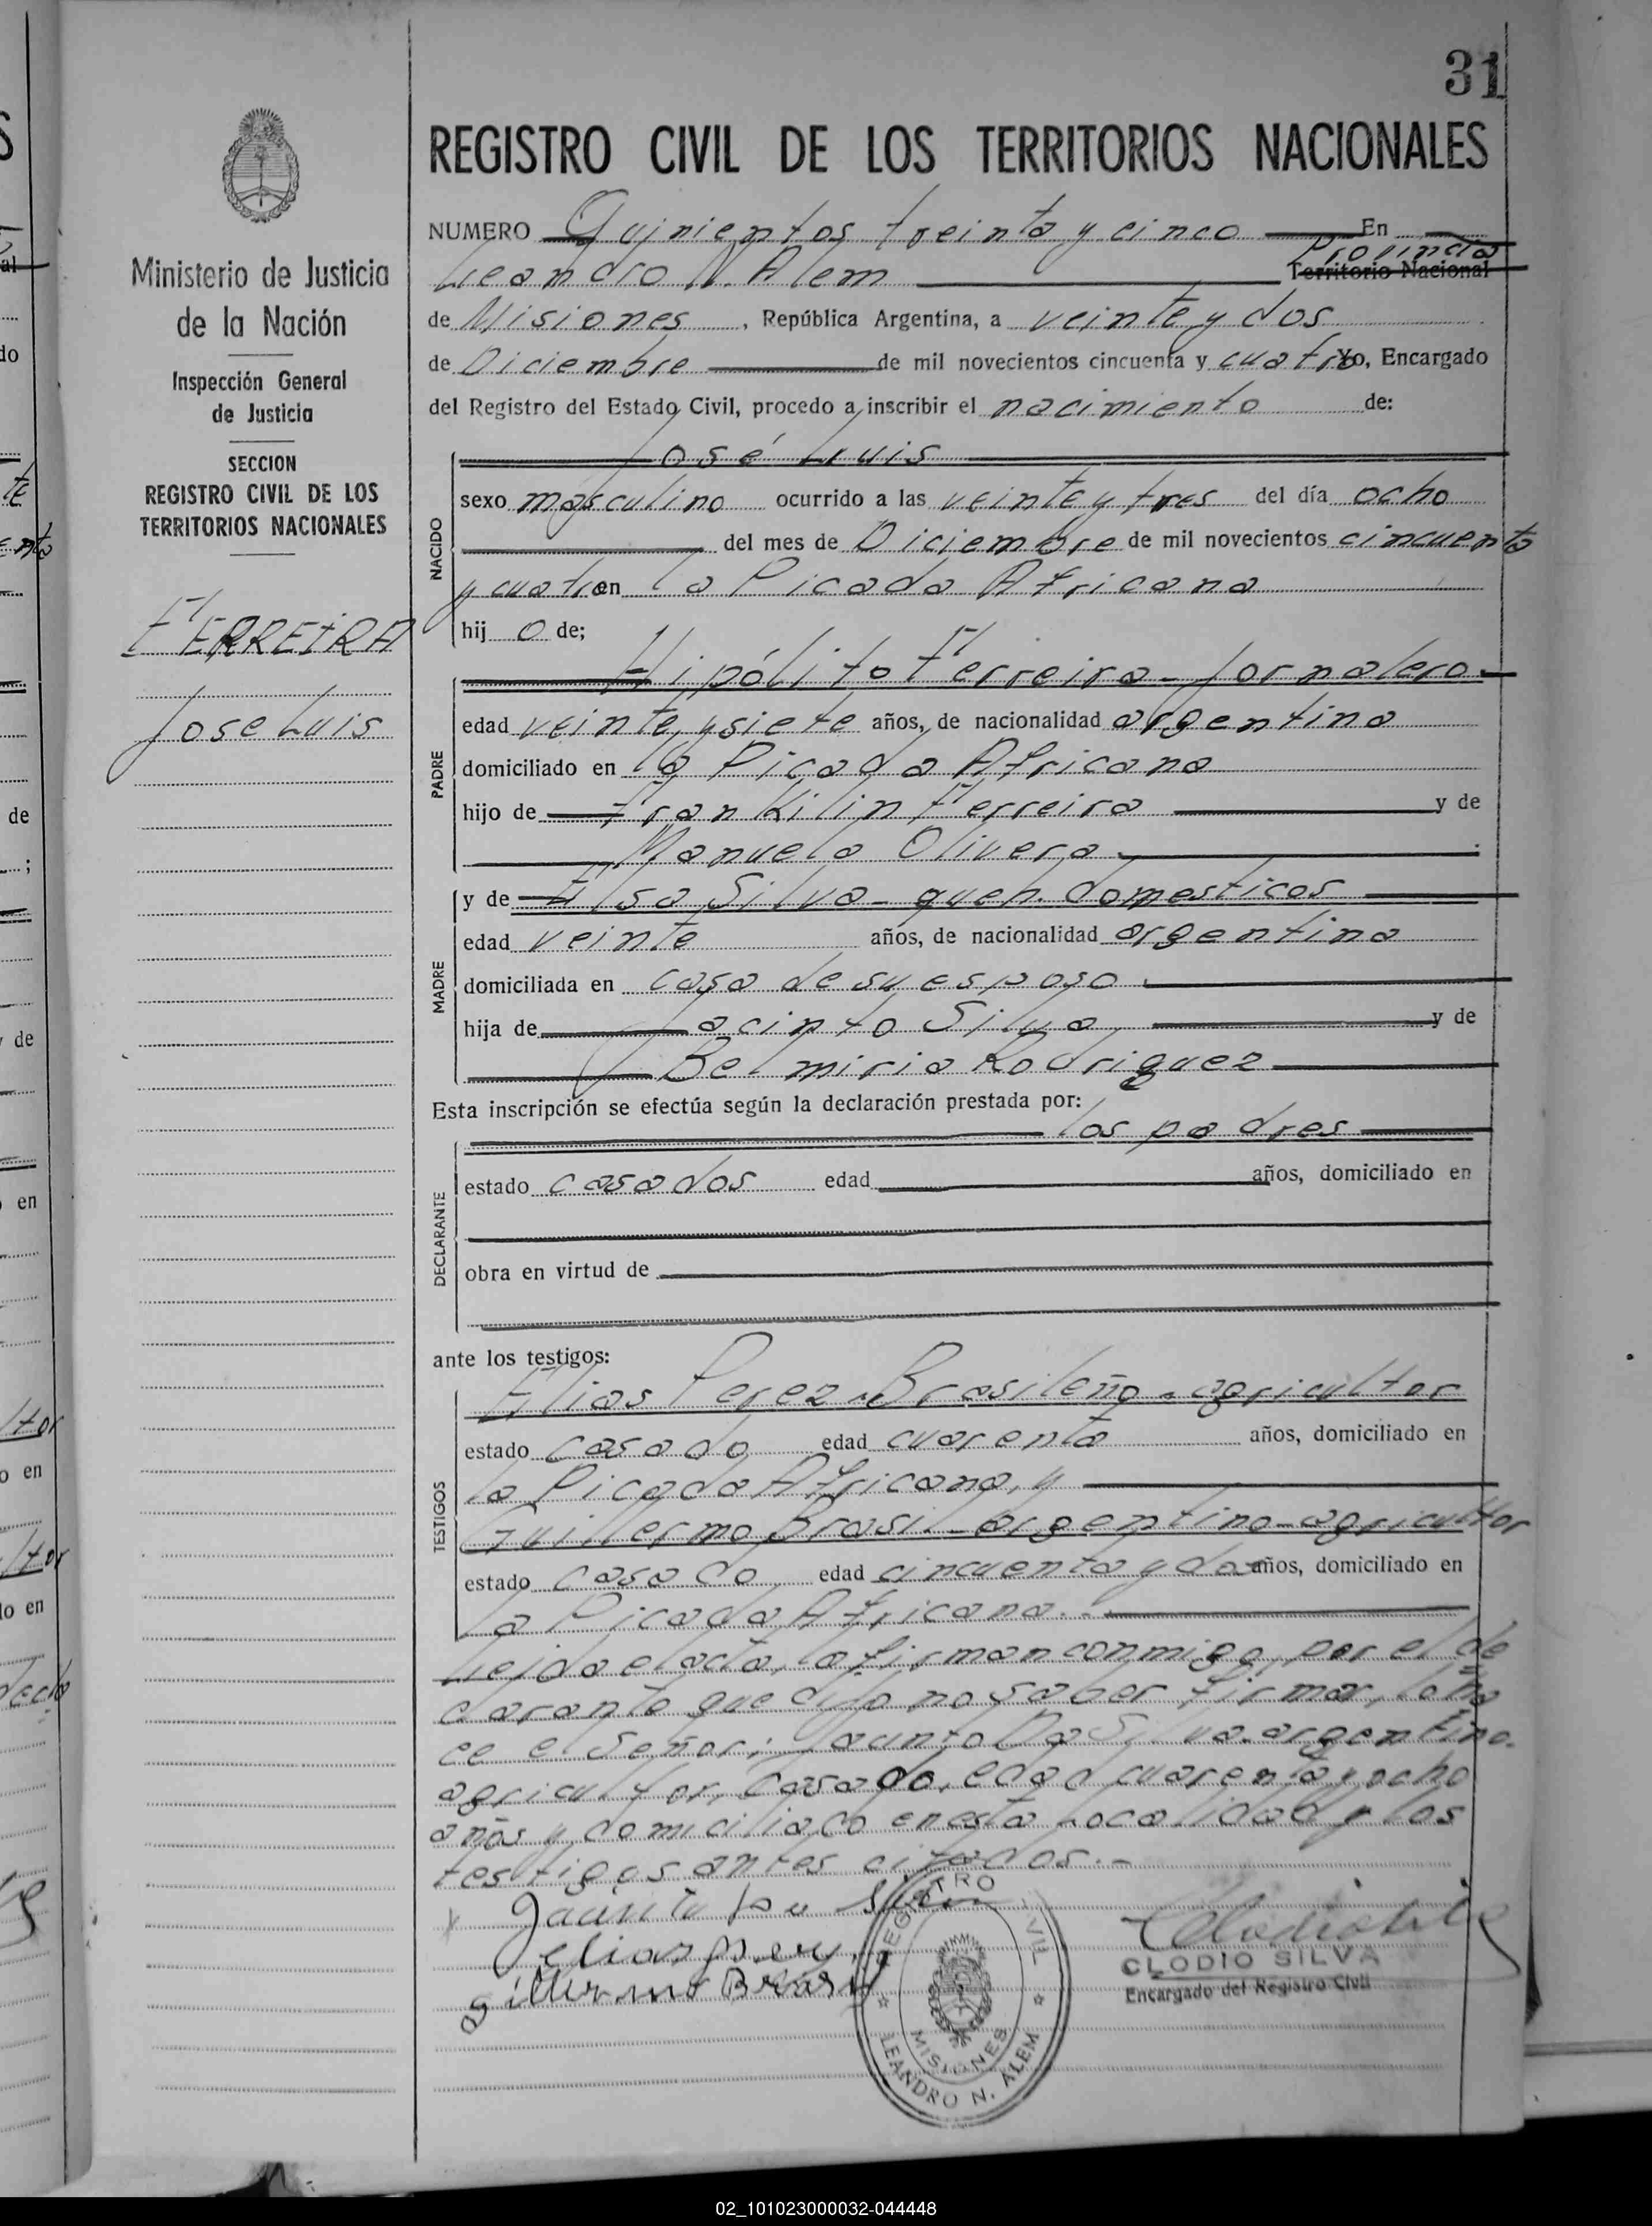 31
REGISTRO CIVIL DE LOS TERRITORIOS NACIONALES
Ministerio de Justicia
de la Nación
Inspección General
de Justicia
SECCION
REGISTRO CIVIL DE LOS
TERRITORIOS NACIONALES
FERREIRA
Jose Luis
NUMERO Quinientos treinta y cinco En
Leandro N. Alem Provincia Territorio Nacional
de Misiones, República Argentina, a veinte y dos
de Diciembre de mil novecientos cincuenta y cuatro Yo, Encargado
del Registro del Estado Civil, procedo a inscribir el nacimiento de:
NACIDO
José Luis
sexo masculino ocurrido a las veinte y tres del día ocho
del mes de Diciembre de mil novecientos cincuenta
y cuatro en la Picada Africana
hij o de;
PADRE
Hipólito Ferreira - Jornalero -
edad veinte y siete años, de nacionalidad argentina
domiciliado en la Picada Africana
hijo de Frankilin Ferreira y de
Manuela Olivera
MADRE
y de Elsa Silva - queh. domesticos
edad veinte años, de nacionalidad argentina
domiciliada en casa de su esposo
hija de Jacinto Silva y de
Belmiria Rodriguez
Esta inscripción se efectúa según la declaración prestada por:
DECLARANTE
los padres
estado casados edad años, domiciliado en
obra en virtud de
ante los testigos:
TESTIGOS
Elias Perez - Brasileño - agricultor
estado casado edad cuarenta años, domiciliado en
la Picada Africana, y
Guillermo Brasil - argentino - agricultor
estado casado edad cincuenta y dos años, domiciliado en
la Picada Africana. -
Leida el acta, la firman conmigo, por el de
clarante que dijo no saber firmar, lo ha
ce el Señor: Jacinto Da Silva. argentino.
agricultor, Casado, edad cuarenta y ocho
años y domiciliado en esta Localidad y los
testigos antes citados. -
Jacinto Da Silva
elias perez
gillermo Brasil
REGISTRO CIVIL
MISIONES
LEANDRO N. ALEM
CLODIO SILVA
Encargado del Registro Civil
02_101023000032-044448